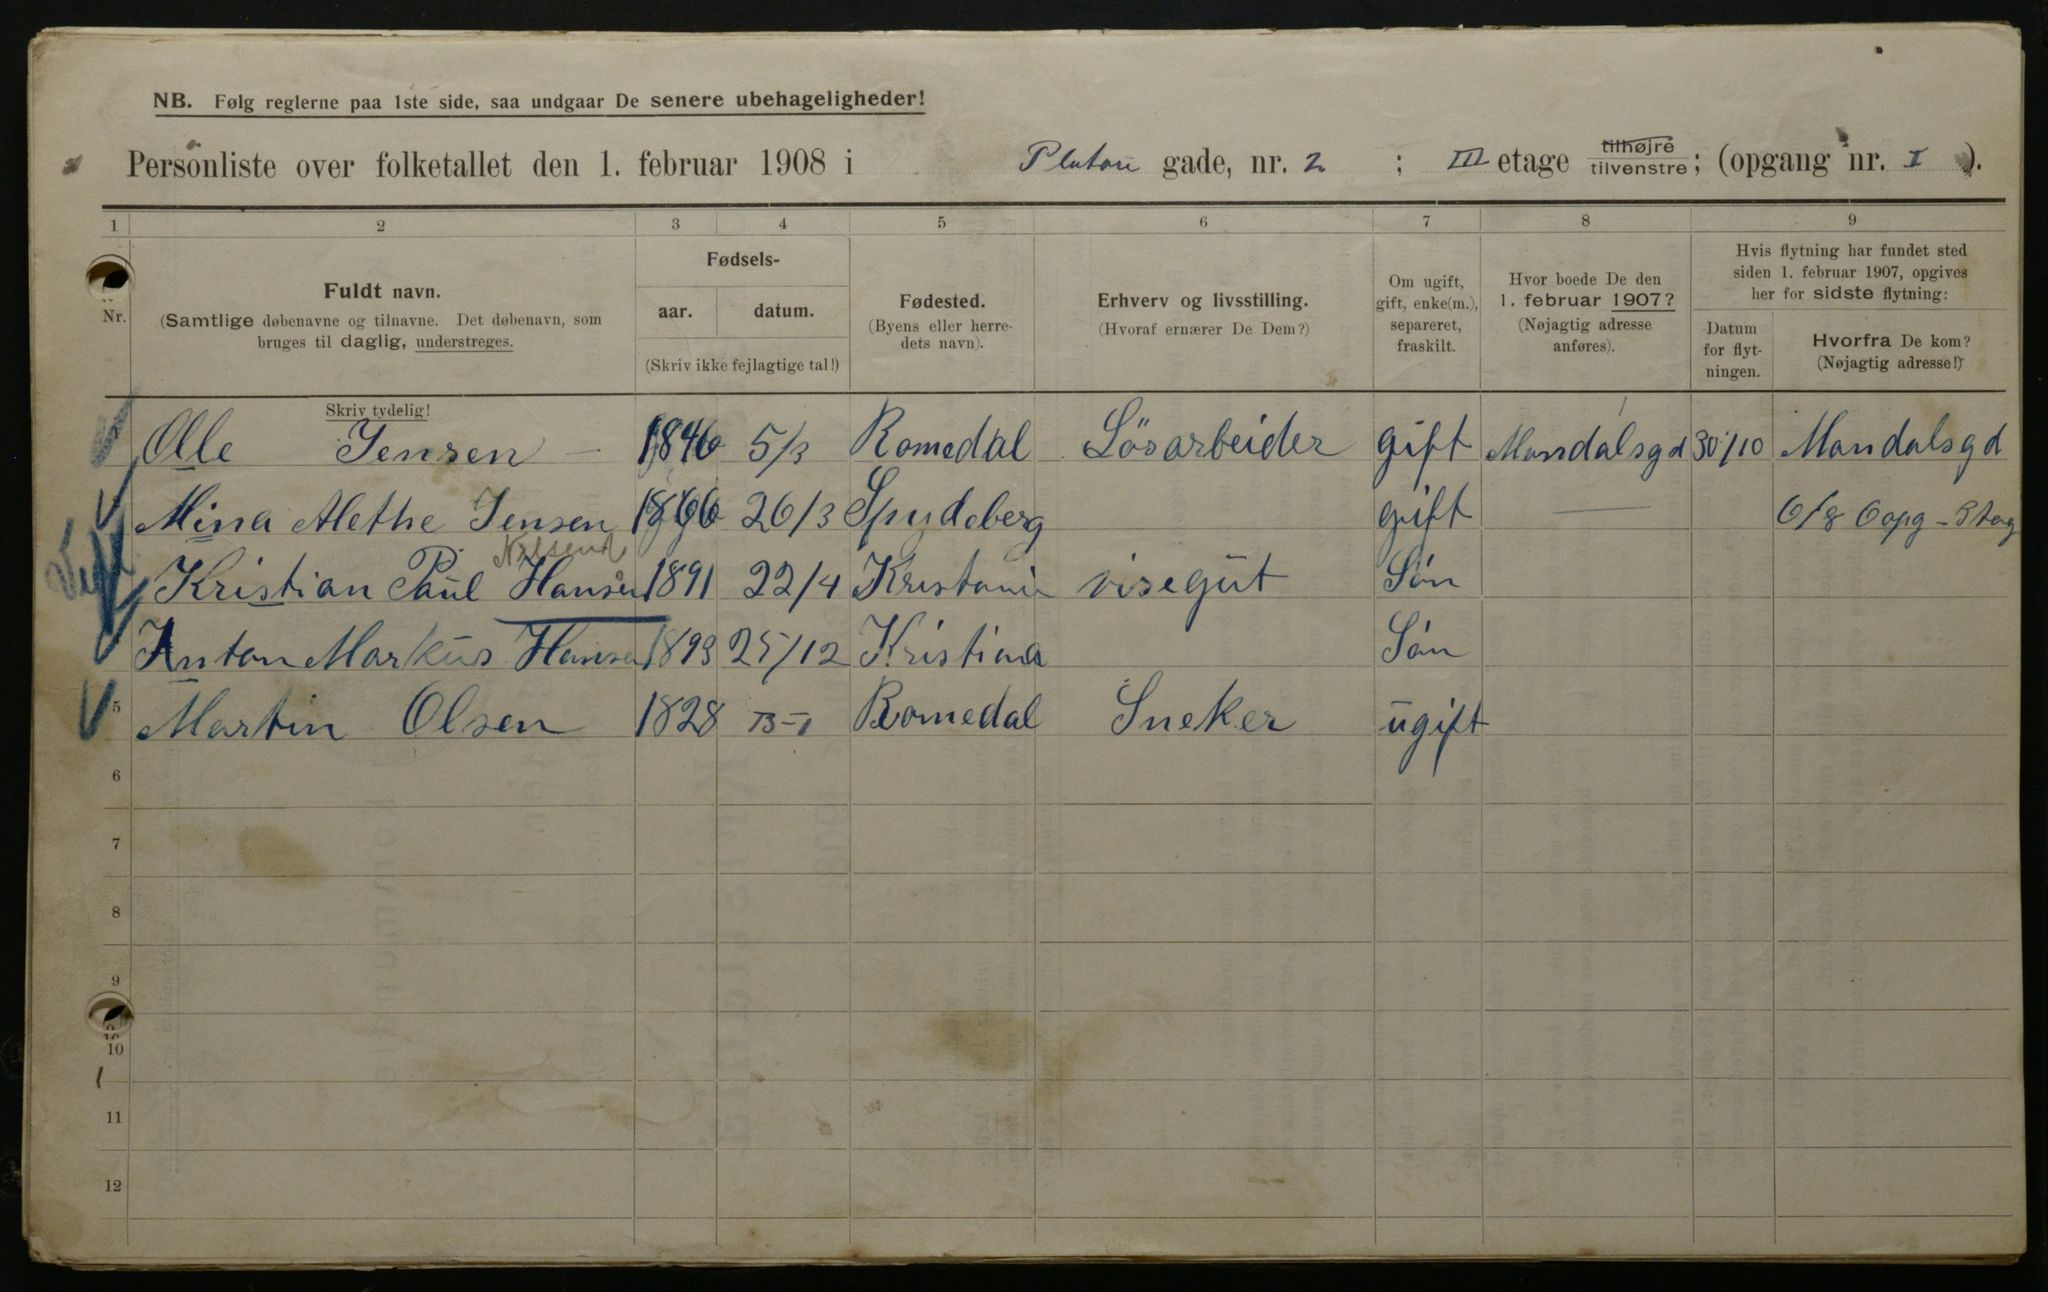 NB. Følg reglerne paa 1ste side, saa undgaar De senere ubehageligheder!
Personliste over folketallet den 1. februar 1908 i Platou gade, nr. 2 ; III etage tilhøjre tilvenstre; (opgang nr. I ).
1 2 3 4 5 6 7 8 9
Nr.
Fuldt navn.
(Samtlige døbenavne og tilnavne. Det døbenavn, som
bruges til daglig, understreges.
Skriv tydelig!
Fødsels-
aar. datum.
(Skriv ikke fejlagtige tal!)
Fødested.
(Byens eller herre-
dets navn).
Erhverv og livsstilling.
(Hvoraf ernærer De Dem?)
Om ugift,
gift, enke(m.),
separeret,
fraskilt.
Hvor boede De den
1. februar 1907?
(Nøjagtig adresse
anføres).
Hvis flytning har fundet sted
siden 1. februar 1907, opgives
her for sidste flytning:
Datum
for flyt-
ningen.
Hvorfra De kom?
(Nøjagtig adresse!)
Olle Jensen 1846 5/3 Romedal Lösarbeider gift Mandalsgd 30/10 Mandalsgd
Mina Alethe Jensen 1866 26/3 Spydeberg gift — 6/8 Oopg - Stag
Kristian Paul Hansen 1891 22/4 Kristania visegut Sön
Anton Markus Hansen 1893 25/12 Kristina Sön
5 Martin Olsen 1828 Romedal Sneker ugift
6
7
8
9
10
11
12